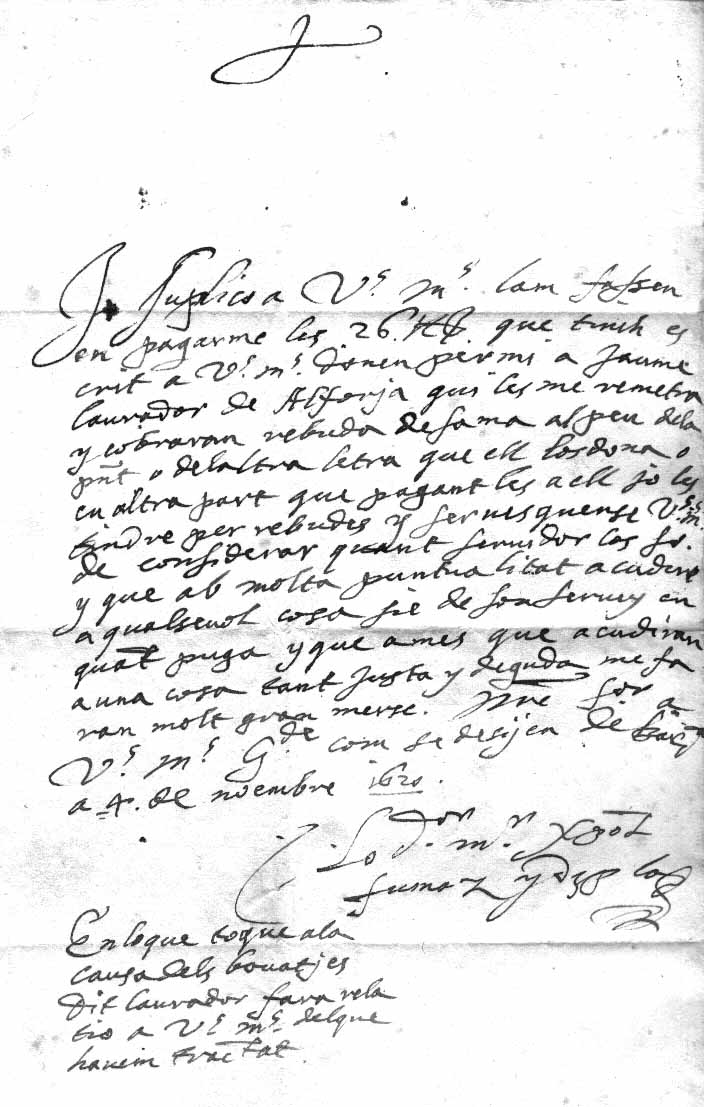 Jo Suplico a V.s m.s lam fassen
en pagarme les 26 que tinch es
crit a V.s m.s donen per mi a Jaume
laurador de Alforja qui les me remetra
y cobraran rebuda de sa ma al peu dela
pñt o delaltra letra que ell losdona o
en altra part que pagantles a ell jo les
tindre per rebudes y servesquense V.s m.s
de considerar quant servidor los so.
y que ab molta puntualitat acudire
a qualsevol cosa sie de son servey en
quãt puga y que ames que acudiran
a una cosa tant justa y deguda me fa
ran molt gran merse. Nre Sor a
V.s m.s Gde com se desijen de
a 4. de noembre 1620.
Lo Dor m.r
En loque toque ala
causa dels bovatjes
Dit laurador fara rela
tio a V.s m.s delque
haveim tractat.